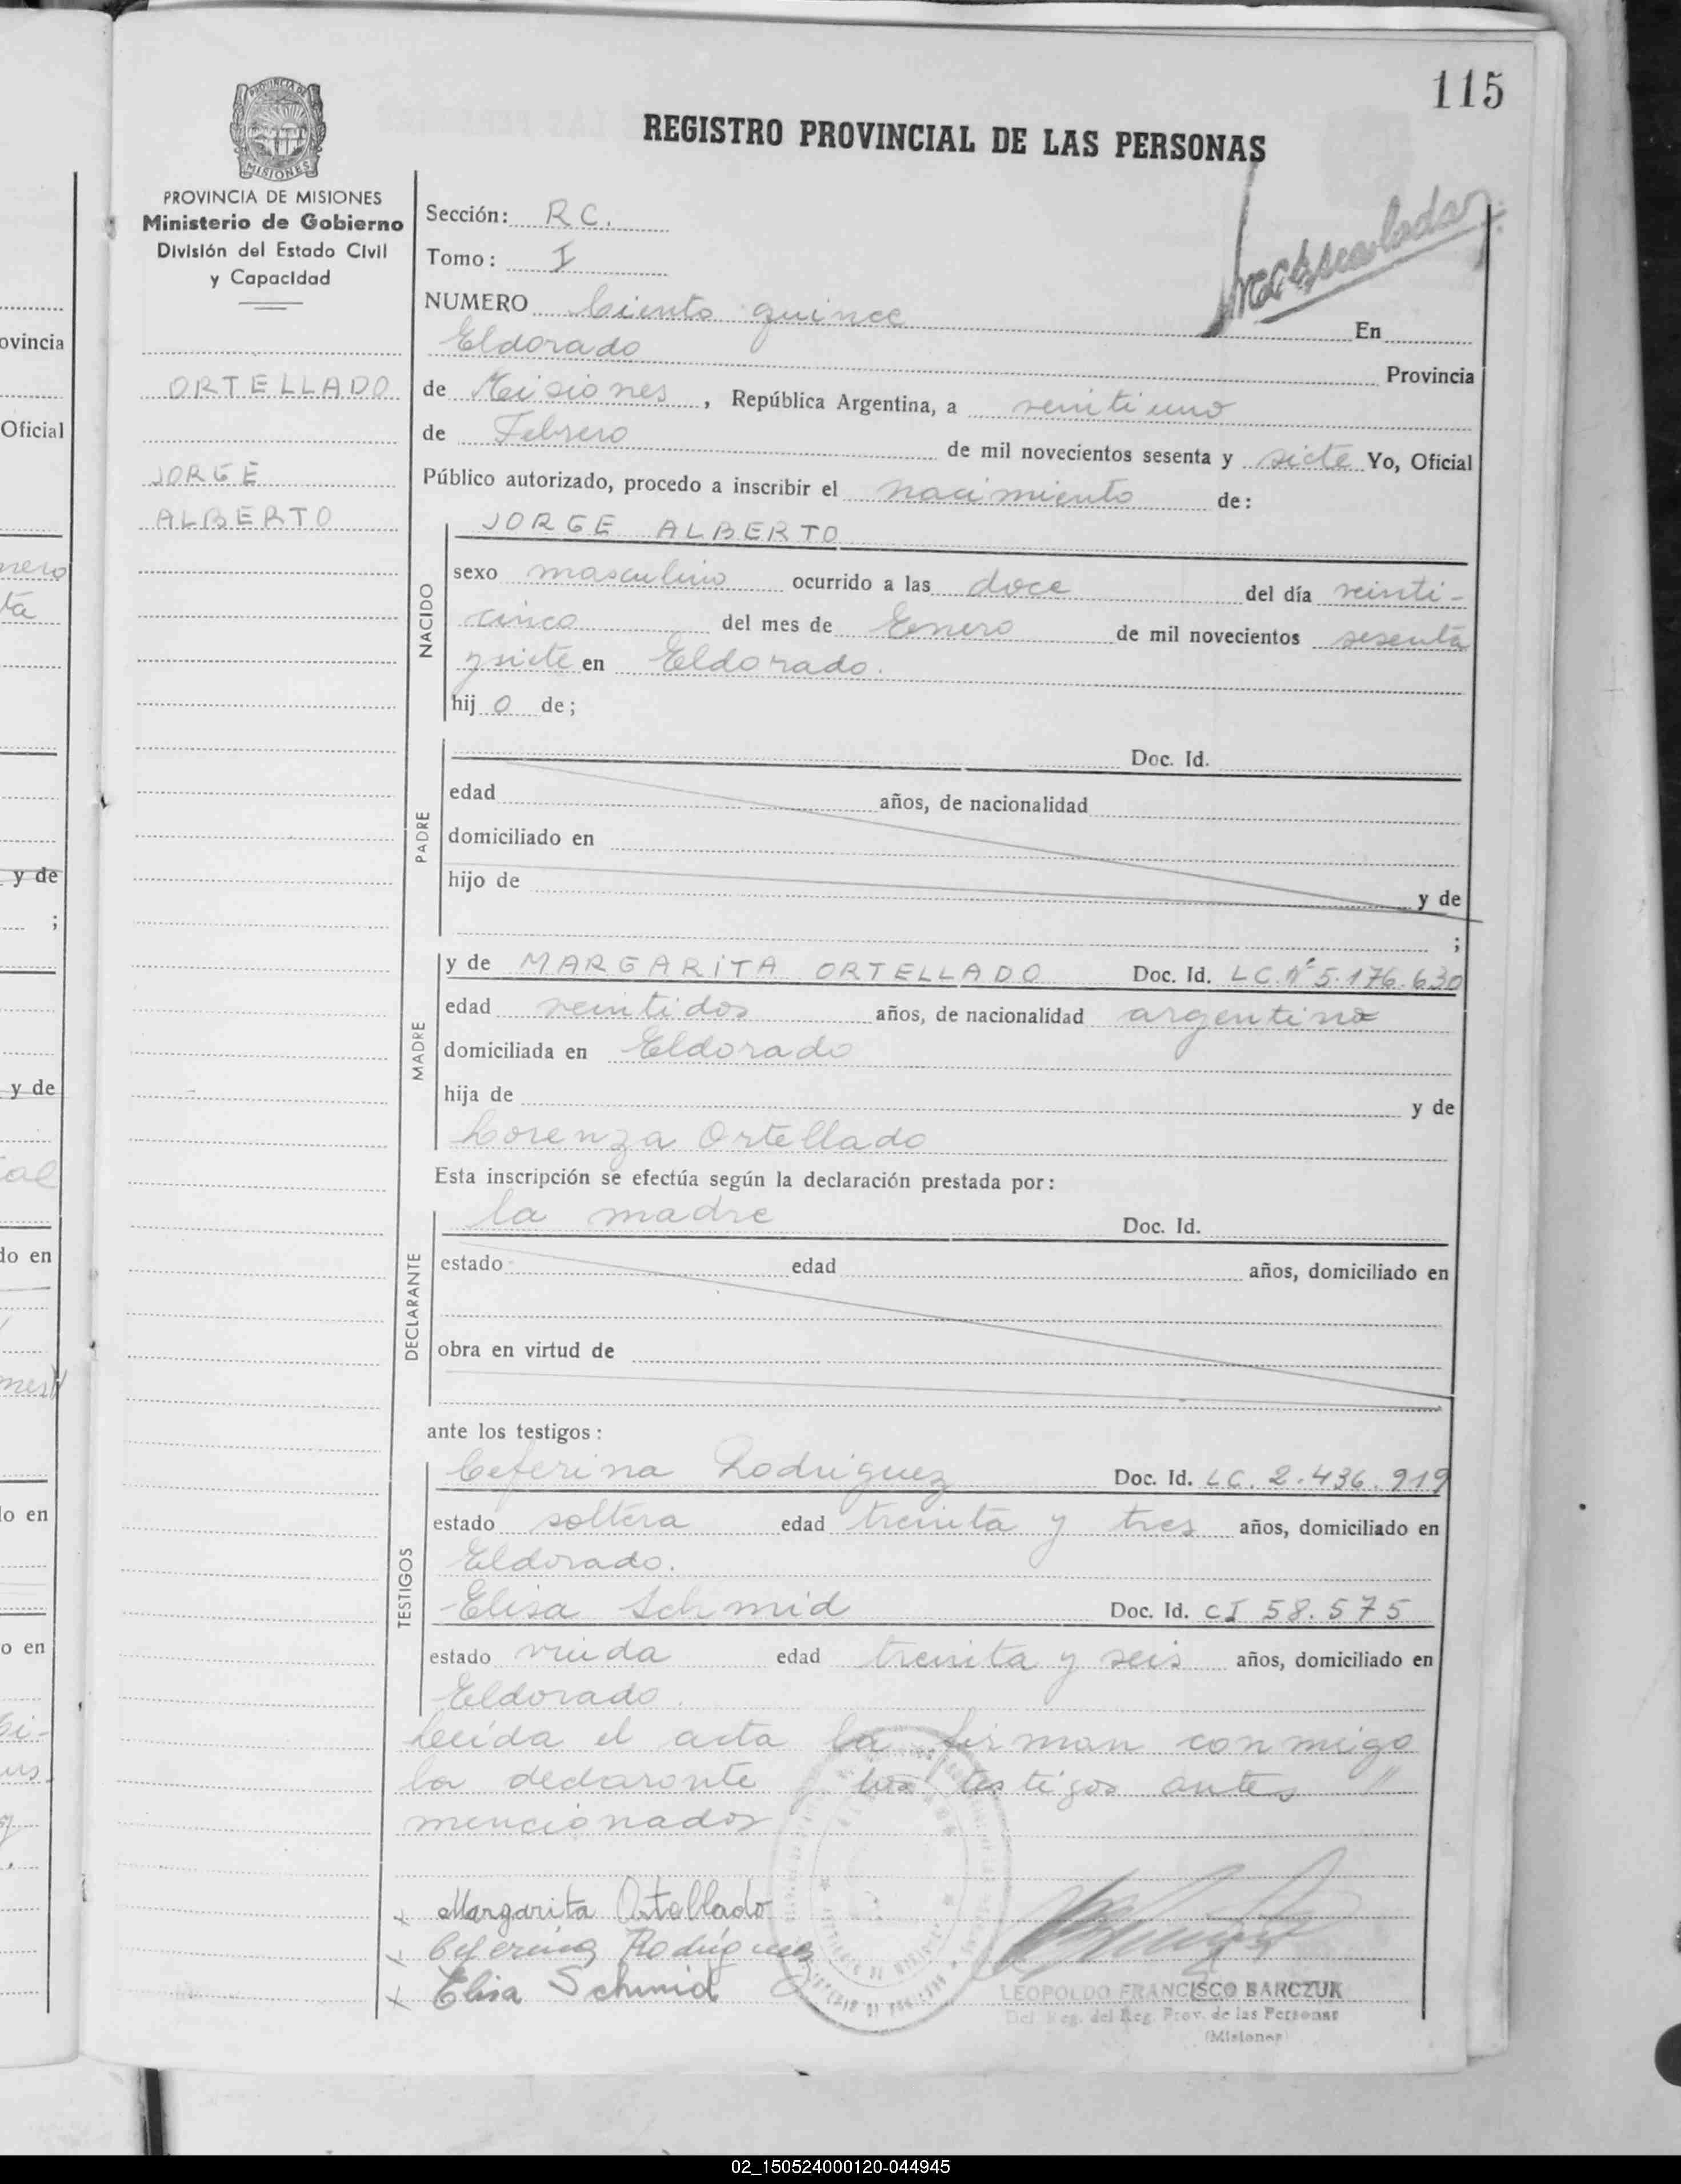 115
REGISTRO PROVINCIAL DE LAS PERSONAS
PROVINCIA DE
MISIONES
PROVINCIA DE MISIONES
Ministerio de Gobierno
División del Estado Civil
y Capacidad
ORTELLADO
JORGE
ALBERTO
Sección: R C.
Tomo: I
NUMERO Ciento quince En
Eldorado Provincia
de Misiones, República Argentina, a veintiuno
de Febrero de mil novecientos sesenta y siete Yo, Oficial
Público autorizado, procedo a inscribir el nacimiento de:
NACIDO
JORGE ALBERTO
sexo masculino ocurrido a las doce del día veinti-
cinco del mes de Enero de mil novecientos sesenta
y siete en Eldorado.
hij o de;
PADRE
Doc. Id.
edad años, de nacionalidad
domiciliado en
hijo de y de
;
MADRE
y de MARGARITA ORTELLADO Doc. Id. LC.Nº 5.176.630
edad veintidos años, de nacionalidad argentina
domiciliada en Eldorado
hija de y de
Lorenza Ortellado
Esta inscripción se efectúa según la declaración prestada por:
DECLARANTE
la madre Doc. Id.
estado edad años, domiciliado en
obra en virtud de
ante los testigos:
TESTIGOS
Ceferina Rodriguez Doc. Id. LC. 2.436.919
estado soltera edad treinta y tres años, domiciliado en
Eldorado.
Elisa Schmid Doc. Id. CI 58.575
estado viuda edad treinta y seis años, domiciliado en
Eldorado.
Leída el acta la firman conmigo
la declarante y los testigos antes "
mencionados
x Margarita Ortellado
x Ceferina Rodriguez
x Elisa Schmid
LEOPOLDO FRANCISCO BARCZUK
Del. Reg. del Reg. Prov. de las Personas
(Misiones)
ovincia
Oficial
y de
;
y de
do en
lo en
o en
02_150524000120-044945